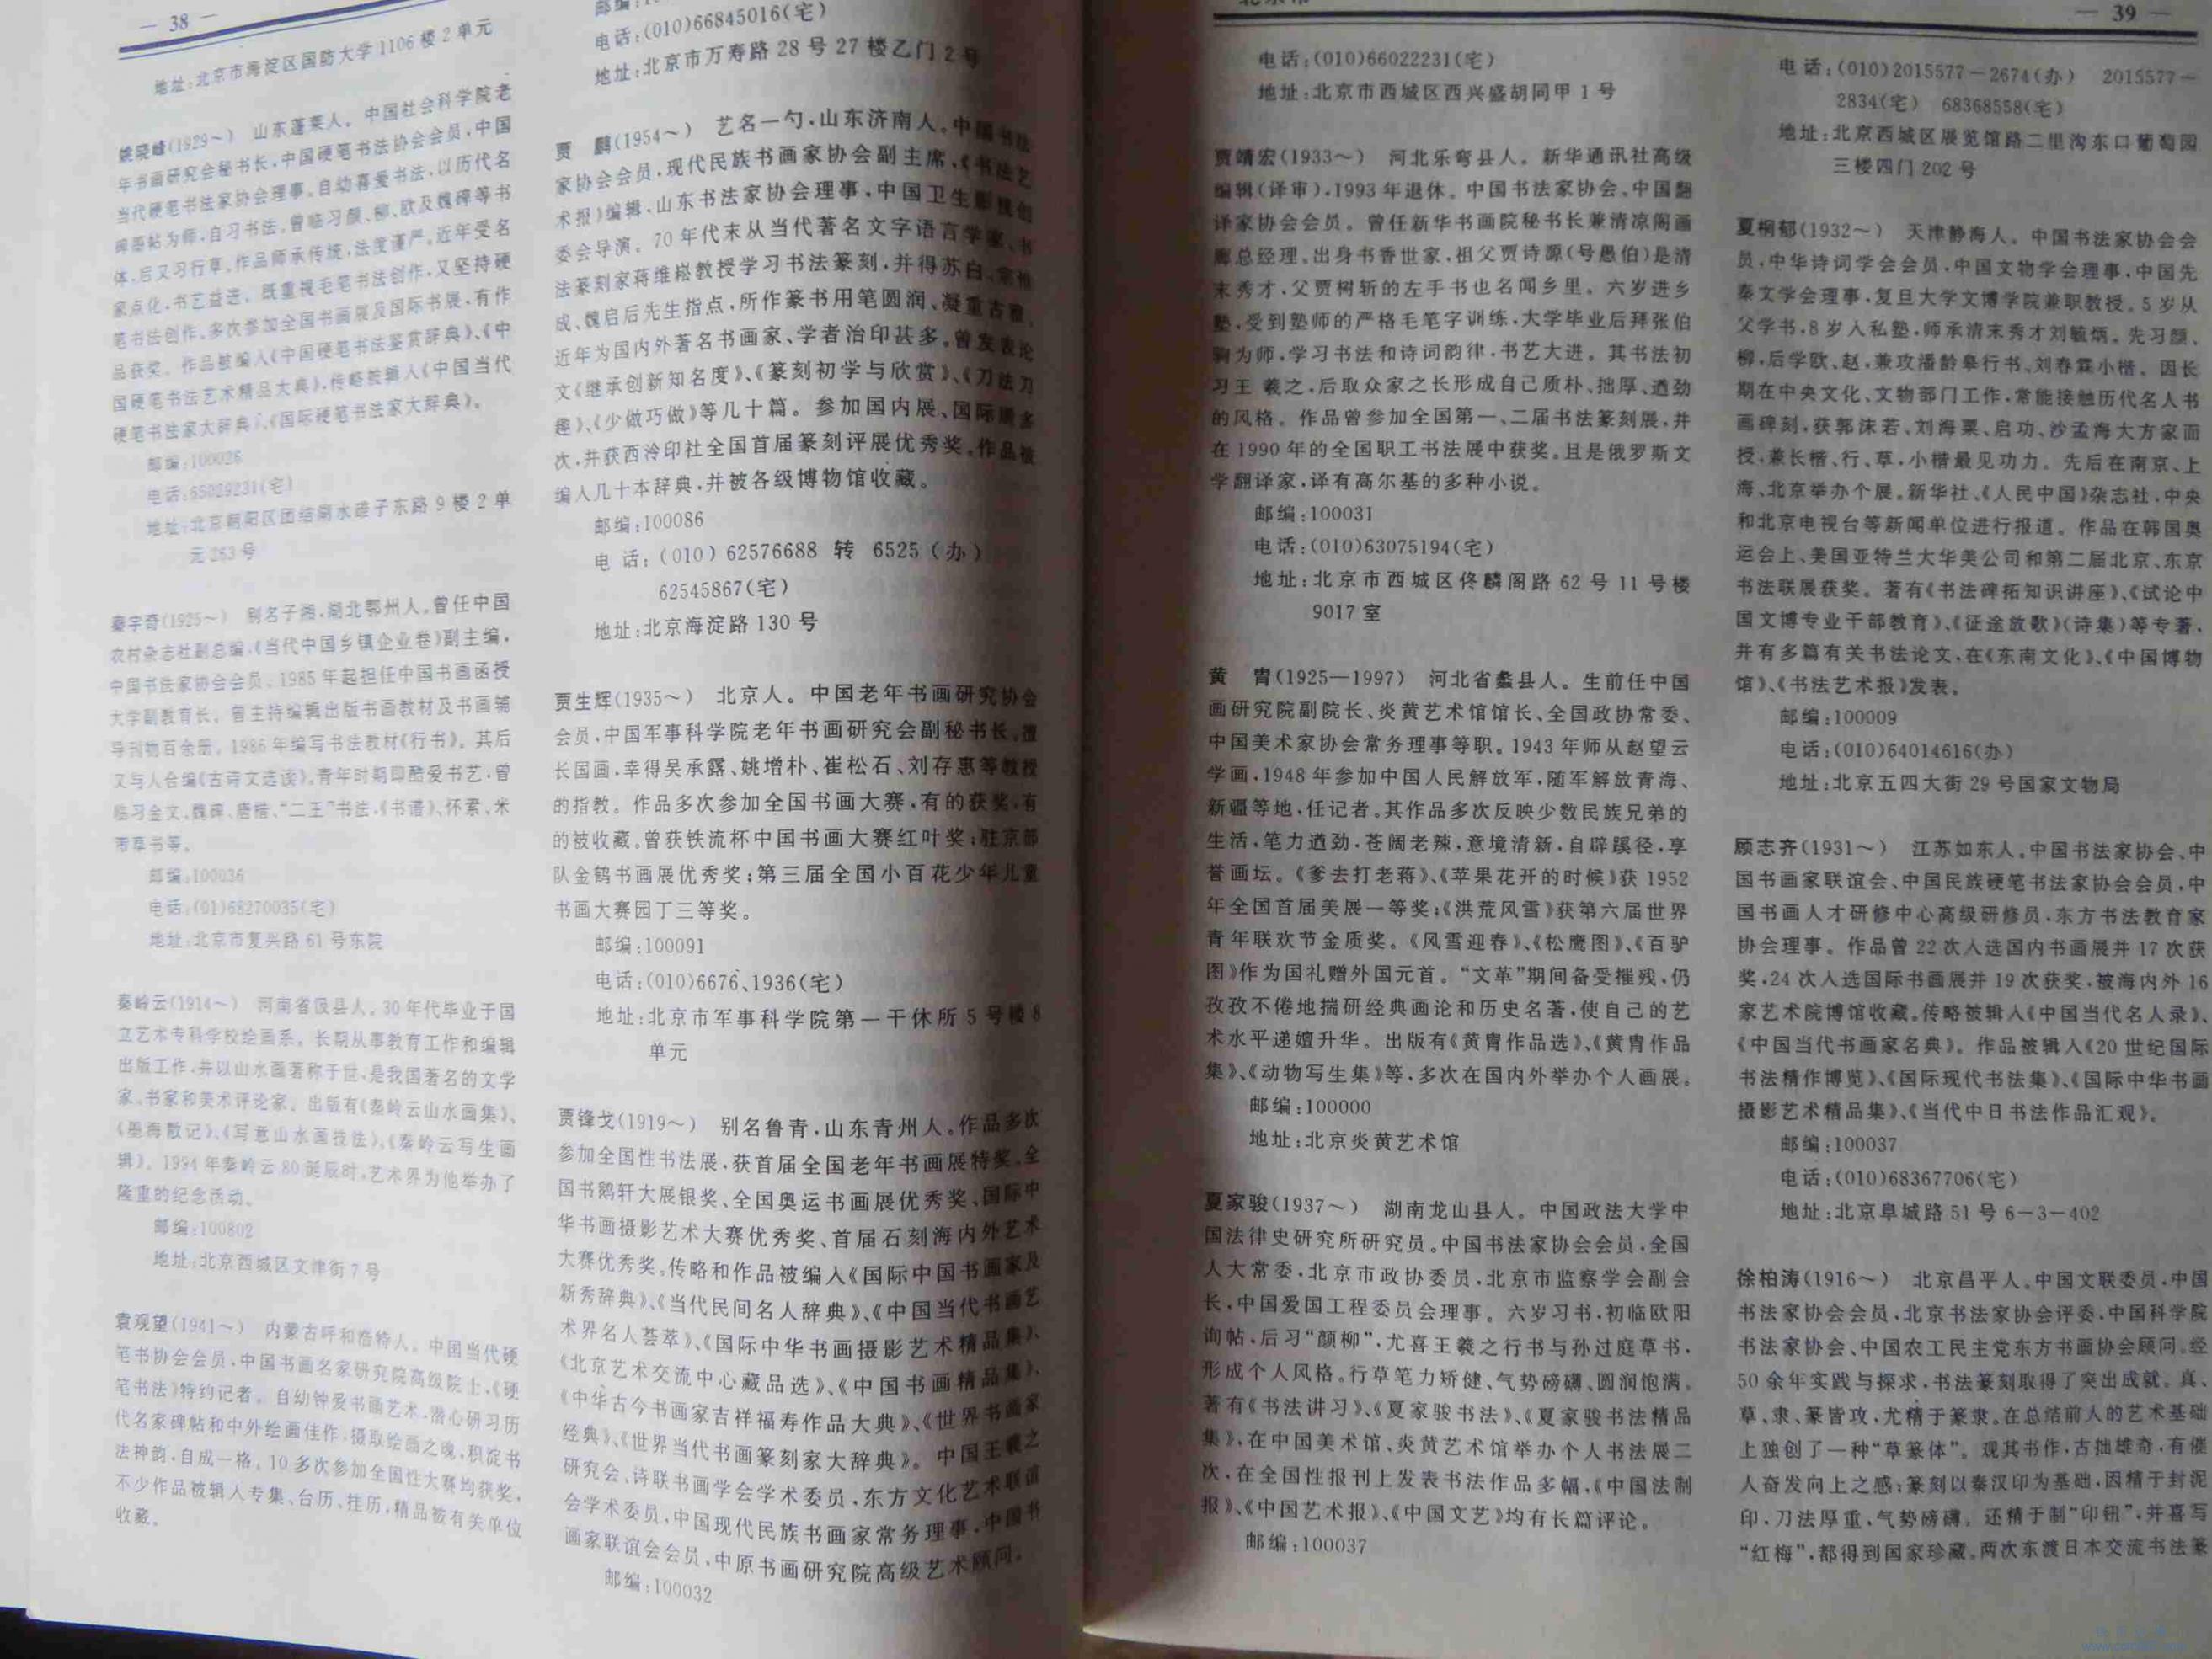 — 38 —
地址:北京市海淀区国防大学1106楼2单元
姚晓峰(1929～) 山东蓬莱人。中国社会科学院老
年书画研究会秘书长,中国硬笔书法协会会员,中国
当代硬笔书法家协会理事。自幼喜爱书法,以历代名
碑墨帖为师,自习书法。曾临习颜、柳、欧及魏碑等书
体,后又习行草。作品师承传统,法度谨严。近年受名
家点化,书艺益进。既重视毛笔书法创作,又坚持硬
笔书法创作。多次参加全国书画展及国际书展,有作
品获奖。作品被编入《中国硬笔书法鉴赏辞典》、《中
国硬笔书法艺术精品大典》,传略被辑入《中国当代
硬笔书法家大辞典》、《国际硬笔书法家大辞典》。
邮编:100026
电话:65029231(宅)
地址:北京朝阳区团结湖水碓子东路9楼2单
元263号
秦宇奇(1925～) 别名子湘,湖北鄂州人。曾任中国
农村杂志社副总编,《当代中国乡镇企业卷》副主编,
中国书法家协会会员。1985年起担任中国书画函授
大学副教育长。曾主持编辑出版书画教材及书画辅
导刊物百余册。1986年编写书法教材《行书》。其后
又与人合编《古诗文选读》。青年时期即酷爱书艺,曾
临习金文、魏碑、唐楷、“二王”书法,《书谱》、怀素、米
芾草书等。
邮编:100036
电话:(01)68270035(宅)
地址:北京市复兴路61号东院
秦岭云(1914～) 河南省汲县人。30年代毕业于国
立艺术专科学校绘画系。长期从事教育工作和编辑
出版工作,并以山水画著称于世,是我国著名的文学
家、书家和美术评论家。出版有《秦岭云山水画集》、
《墨海散记》、《写意山水画技法》、《秦岭云写生画
辑》。1994年秦岭云80诞辰时,艺术界为他举办了
隆重的纪念活动。
邮编:100802
地址:北京西城区文津街7号
袁观望(1941～) 内蒙古呼和浩特人。中国当代硬
笔书协会会员,中国书画名家研究院高级院士,《硬
笔书法》特约记者。自幼钟爱书画艺术,潜心研习历
代名家碑帖和中外绘画佳作,摄取绘画之魂,积淀书
法神韵,自成一格。10多次参加全国性大赛均获奖,
不少作品被辑入专集、台历、挂历,精品被有关单位
收藏。
邮编:1
电话:(010)66845016(宅)
地址:北京市万寿路28号27楼乙门2号
贾　鹏(1954～) 艺名一勺,山东济南人。中国书法
家协会会员,现代民族书画家协会副主席,《书法艺
术报》编辑,山东书法家协会理事,中国卫生影视创
委会导演。70年代末从当代著名文字语言学家、书
法篆刻家蒋维崧教授学习书法篆刻,并得苏白、
成、魏启后先生指点,所作篆书用笔圆润、凝重古雅,
近年为国内外著名书画家、学者治印甚多。曾发表论
文《继承创新知名度》、《篆刻初学与欣赏》、《刀法刀
趣》、《少做巧做》等几十篇。参加国内展、国际展多
次,并获西泠印社全国首届篆刻评展优秀奖。作品被
编入几十本辞典,并被各级博物馆收藏。
邮编:100086
电话:(010)62576688 转 6525(办)
62545867(宅)
地址:北京海淀路130号
贾生辉(1935～) 北京人。中国老年书画研究协会
会员,中国军事科学院老年书画研究会副秘书长。擅
长国画,幸得吴承露、姚增朴、崔松石、刘存惠等教授
的指教。作品多次参加全国书画大赛,有的获奖,有
的被收藏。曾获铁流杯中国书画大赛红叶奖;驻京部
队金鹤书画展优秀奖;第三届全国小百花少年儿童
书画大赛园丁三等奖。
邮编:100091
电话:(010)6676、1936(宅)
地址:北京市军事科学院第一干休所5号楼8
单元
贾锋戈(1919～) 别名鲁青,山东青州人。作品多次
参加全国性书法展,获首届全国老年书画展特奖、全
国书鹅轩大展银奖、全国奥运书画展优秀奖、国际中
华书画摄影艺术大赛优秀奖、首届石刻海内外艺术
大赛优秀奖。传略和作品被编入《国际中国书画家及
新秀辞典》、《当代民间名人辞典》、《中国当代书画艺
术界名人荟萃》、《国际中华书画摄影艺术精品集》、
《北京艺术交流中心藏品选》、《中国书画精品集》、
《中华古今书画家吉祥福寿作品大典》、《世界书画家
经典》、《世界当代书画篆刻家大辞典》。中国王羲之
研究会、诗联书画学会学术委员,东方文化艺术联谊
会学术委员,中国现代民族书画家常务理事,中国书
画家联谊会会员,中原书画研究院高级艺术顾问。
邮编:100032
北京市
— 39 —
电话:(010)66022231(宅)
地址:北京市西城区西兴盛胡同甲1号
贾靖宏(1933～) 河北乐弯县人。新华通讯社高级
编辑(译审),1993年退休。中国书法家协会、中国翻
译家协会会员。曾任新华书画院秘书长兼清凉阁画
廊总经理。出身书香世家,祖父贾诗源(号愚伯)是清
末秀才,父贾树斩的左手书也名闻乡里。六岁进乡
塾,受到塾师的严格毛笔字训练,大学毕业后拜张伯
驹为师,学习书法和诗词韵律,书艺大进。其书法初
习王羲之,后取众家之长形成自己质朴、拙厚、遒劲
的风格。作品曾参加全国第一、二届书法篆刻展,并
在1990年的全国职工书法展中获奖。且是俄罗斯文
学翻译家,译有高尔基的多种小说。
邮编:100031
电话:(010)63075194(宅)
地址:北京市西城区佟麟阁路62号11号楼
9017室
黄　胄(1925—1997) 河北省蠡县人。生前任中国
画研究院副院长、炎黄艺术馆馆长、全国政协常委、
中国美术家协会常务理事等职。1943年师从赵望云
学画,1948年参加中国人民解放军,随军解放青海、
新疆等地,任记者。其作品多次反映少数民族兄弟的
生活,笔力遒劲,苍阔老辣,意境清新,自辟蹊径,享
誉画坛。《爹去打老蒋》、《苹果花开的时候》获1952
年全国首届美展一等奖;《洪荒风雪》获第六届世界
青年联欢节金质奖。《风雪迎春》、《松鹰图》、《百驴
图》作为国礼赠外国元首。“文革”期间备受摧残,仍
孜孜不倦地揣研经典画论和历史名著,使自己的艺
术水平递嬗升华。出版有《黄胄作品选》、《黄胄作品
集》、《动物写生集》等,多次在国内外举办个人画展。
邮编:100000
地址:北京炎黄艺术馆
夏家骏(1937～) 湖南龙山县人。中国政法大学中
国法律史研究所研究员。中国书法家协会会员,全国
人大常委,北京市政协委员,北京市监察学会副会
长,中国爱国工程委员会理事。六岁习书,初临欧阳
询帖,后习“颜柳”,尤喜王羲之行书与孙过庭草书,
形成个人风格。行草笔力矫健、气势磅礴、圆润饱满。
著有《书法讲习》、《夏家骏书法》、《夏家骏书法精品
集》,在中国美术馆、炎黄艺术馆举办个人书法展二
次,在全国性报刊上发表书法作品多幅,《中国法制
报》、《中国艺术报》、《中国文艺》均有长篇评论。
邮编:100037
电话:(010)2015577－2674(办) 2015577－
2834(宅) 68368558(宅)
地址:北京西城区展览馆路二里沟东口葡萄园
三楼四门202号
夏桐郁(1932～) 天津静海人。中国书法家协会会
员,中华诗词学会会员,中国文物学会理事,中国先
秦文学会理事,复旦大学文博学院兼职教授。5岁从
父学书,8岁入私塾,师承清末秀才刘毓炳。先习颜、
柳,后学欧、赵,兼攻潘龄皋行书、刘春霖小楷。因长
期在中央文化、文物部门工作,常能接触历代名人书
画碑刻,获郭沫若、刘海粟、启功、沙孟海大方家面
授,兼长楷、行、草,小楷最见功力。先后在南京、上
海、北京举办个展。新华社、《人民中国》杂志社,中央
和北京电视台等新闻单位进行报道。作品在韩国奥
运会上、美国亚特兰大华美公司和第二届北京、东京
书法联展获奖。著有《书法碑拓知识讲座》、《试论中
国文博专业干部教育》、《征途放歌》(诗集)等专著,
并有多篇有关书法论文,在《东南文化》、《中国博物
馆》、《书法艺术报》发表。
邮编:100009
电话:(010)64014616(办)
地址:北京五四大街29号国家文物局
顾志齐(1931～) 江苏如东人。中国书法家协会、中
国书画家联谊会、中国民族硬笔书法家协会会员,中
国书画人才研修中心高级研修员,东方书法教育家
协会理事。作品曾22次入选国内书画展并17次获
奖,24次入选国际书画展并19次获奖,被海内外16
家艺术院博馆收藏。传略被辑入《中国当代名人录》、
《中国当代书画家名典》。作品被辑入《20世纪国际
书法精作博览》、《国际现代书法集》、《国际中华书画
摄影艺术精品集》、《当代中日书法作品汇观》。
邮编:100037
电话:(010)68367706(宅)
地址:北京阜城路51号6－3－402
徐柏涛(1916～) 北京昌平人。中国文联委员,中国
书法家协会会员,北京书法家协会评委,中国科学院
书法家协会、中国农工民主党东方书画协会顾问。经
50余年实践与探求,书法篆刻取得了突出成就。真、
草、隶、篆皆攻,尤精于篆隶。在总结前人的艺术基础
上独创了一种“草篆体”。观其书作,古拙雄奇,有催
人奋发向上之感;篆刻以秦汉印为基础,因精于封泥
印,刀法厚重,气势磅礴。还精于制“印钮”,并喜写
“红梅”,都得到国家珍藏。两次东渡日本交流书法篆